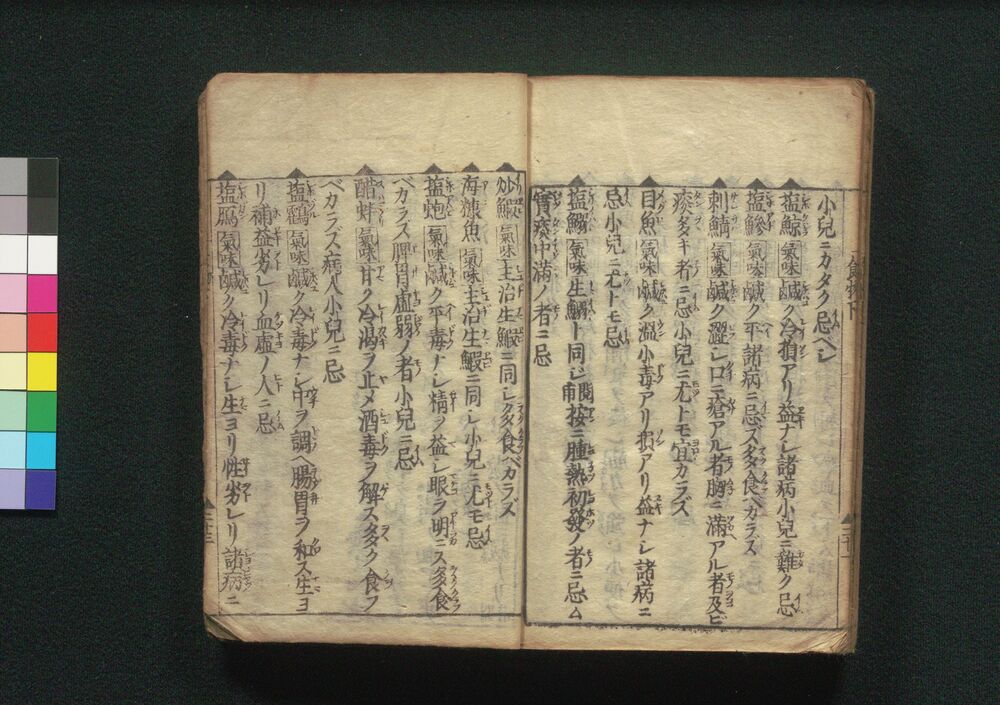 小兒ニカタク忌ベシ
塩鯨 氣味鹹ク冷損アリ益ナシ諸病小兒ニ難ク忌
塩鰺 氣味鹹ク平諸病ニ忌ズ多食ベカラズ
刺鯖 氣味鹹ク澀シ口ニ瘡アル者胸ニ滿アル者及ビ
痰多キ者ニ忌小兒ニ尤トモ宜カラズ
目魚 氣味鹹ク溫小毒アリ損アリ益ナシ諸病ニ
忌小兒ニ尤トモ忌
塩鰯 氣味生鰯ト同ジ閲按ニ腫熱初發ノ者ニ忌ム
中滿ノ者ニ忌
炒鰕 氣味主治生鰕ニ同シ多食ベカラズ
海糠魚 氣味主治生鰕ニ同シ小兒ニ尤モ忌
塩鮑 氣味鹹ク平毒ナシ情ヲ益シ眼ヲ明ニス多食
ベカラス脾胃虛弱ノ者小兒ニ忌
醋蚌 氣味甘ク冷渴ヲ止メ酒毒ヲ解ス多ク食フ
ベカラズ病人小兒ニ忌
塩鶴 氣味鹹ク冷毒ナシ中ヲ調ヘ腸胃ヲ和ス生ヨ
リ補益劣レリ血虛ノ人ニ忌
塩鴈 氣味鹹ク冷毒ナシ生ヨリ性劣レリ諸病ニ